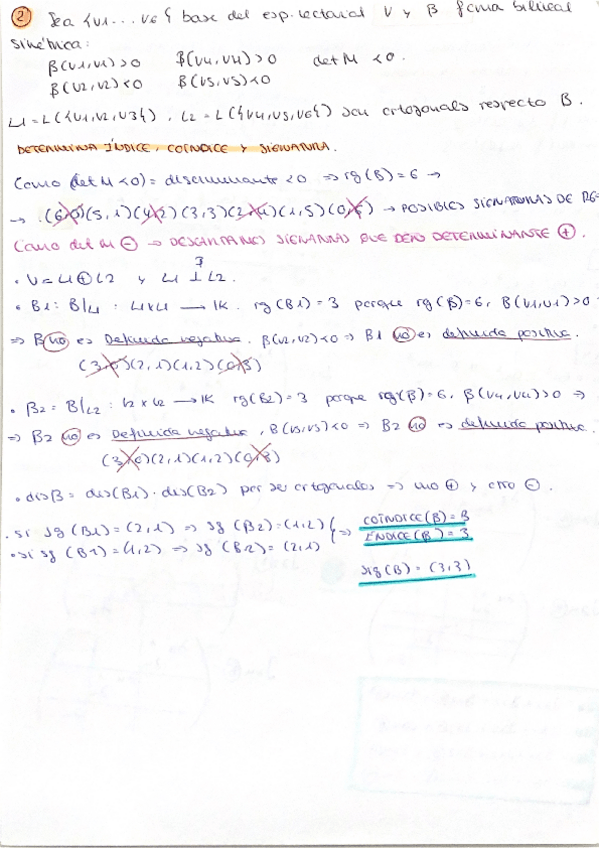 ② Sea {v1...v6} base del esp. vectorial V y β forma bilineal
simétrica:
β(v1,v1)>0 β(v4,v4)>0 det M <0.
β(v2,v2)<0 β(v5,v5)<0
L1=L({v1,v2,v3}), L2=L({v4,v5,v6}) son ortogonales respecto β.
DETERMINA ÍNDICE, COÍNDICE Y SIGNATURA.
Como det M <0) = discriminante <0 ⇒ rg(β)=6 →
→ (6,0)(5,1)(4,2)(3,3)(2,4)(1,5)(0,6) → POSIBLES SIGNATURAS DE RG=
Como det M ⊖ → DESCARTAMOS SIGNATURAS QUE DEN DETERMINANTE ⊕.
• V = L1 ⊕ L2 y L1 ⊥ L2.
• β1: β|L1 : L1xL1 → IK. rg(β1)=3 porque rg(β)=6, β(v1,v1)>0
⇒ β no es Definida negativa. β(v2,v2)<0 ⇒ β1 no es definida positiva.
(3,0)(2,1)(1,2)(0,3)
• β2 = β|L2 : L2 x L2 → IK rg(β2)=3 porque rg(β)=6, β(v4,v4)>0 ⇒
⇒ β2 no es Definida negativa, β(v5,v5)<0 ⇒ β2 no es definida positiva.
(3,0)(2,1)(1,2)(0,3)
• disβ = dis(β1)·dis(β2) por ser ortogonales ⇒ uno ⊕ y otro ⊖.
• si sg(β1)=(2,1) ⇒ sg(β2)=(1,2) } ⇒ COÍNDICE(β)=3
• si sg(β1)=(1,2) ⇒ sg(β2)=(2,1) ÍNDICE(β)=3
sig(β)=(3,3)